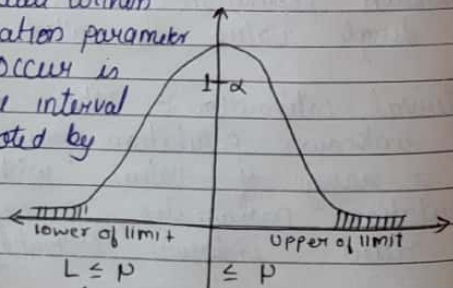 ation parameter
occur is
interval
oted by
1 - α
lower of limit
upper of limit
L ≤ μ ≤ μ